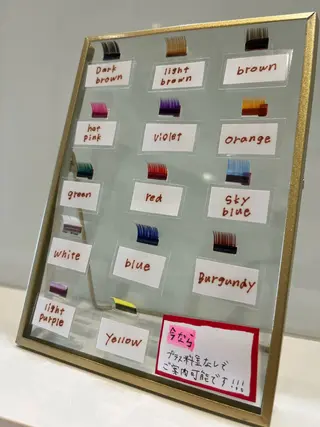 Dark
brown
light
brown
brown
hot
pink
violet
orange
green
red
sky
blue
white
blue
Burgundy
light
purple
Yellow
今なら
プラス料金なしで
ご案内可能です!!!